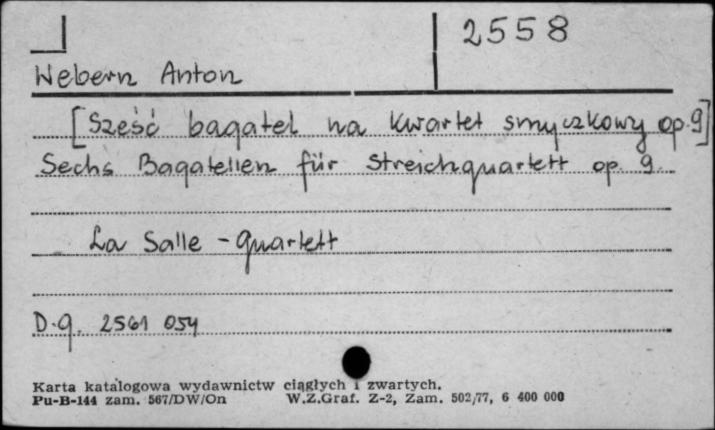 2558
Webern Anton
[Sześć bagatel na kwartet smyczkowy op. 9]
Sechs Bagatellen für Streichquartett op. 9.
La Salle - Quartett
D.g. 2561 054
Karta katalogowa wydawnictw ciągłych i zwartych.
Pu-B-144 zam. 567/DW/On W.Z.Graf. Z-2, Zam. 502/77, 6 400 000